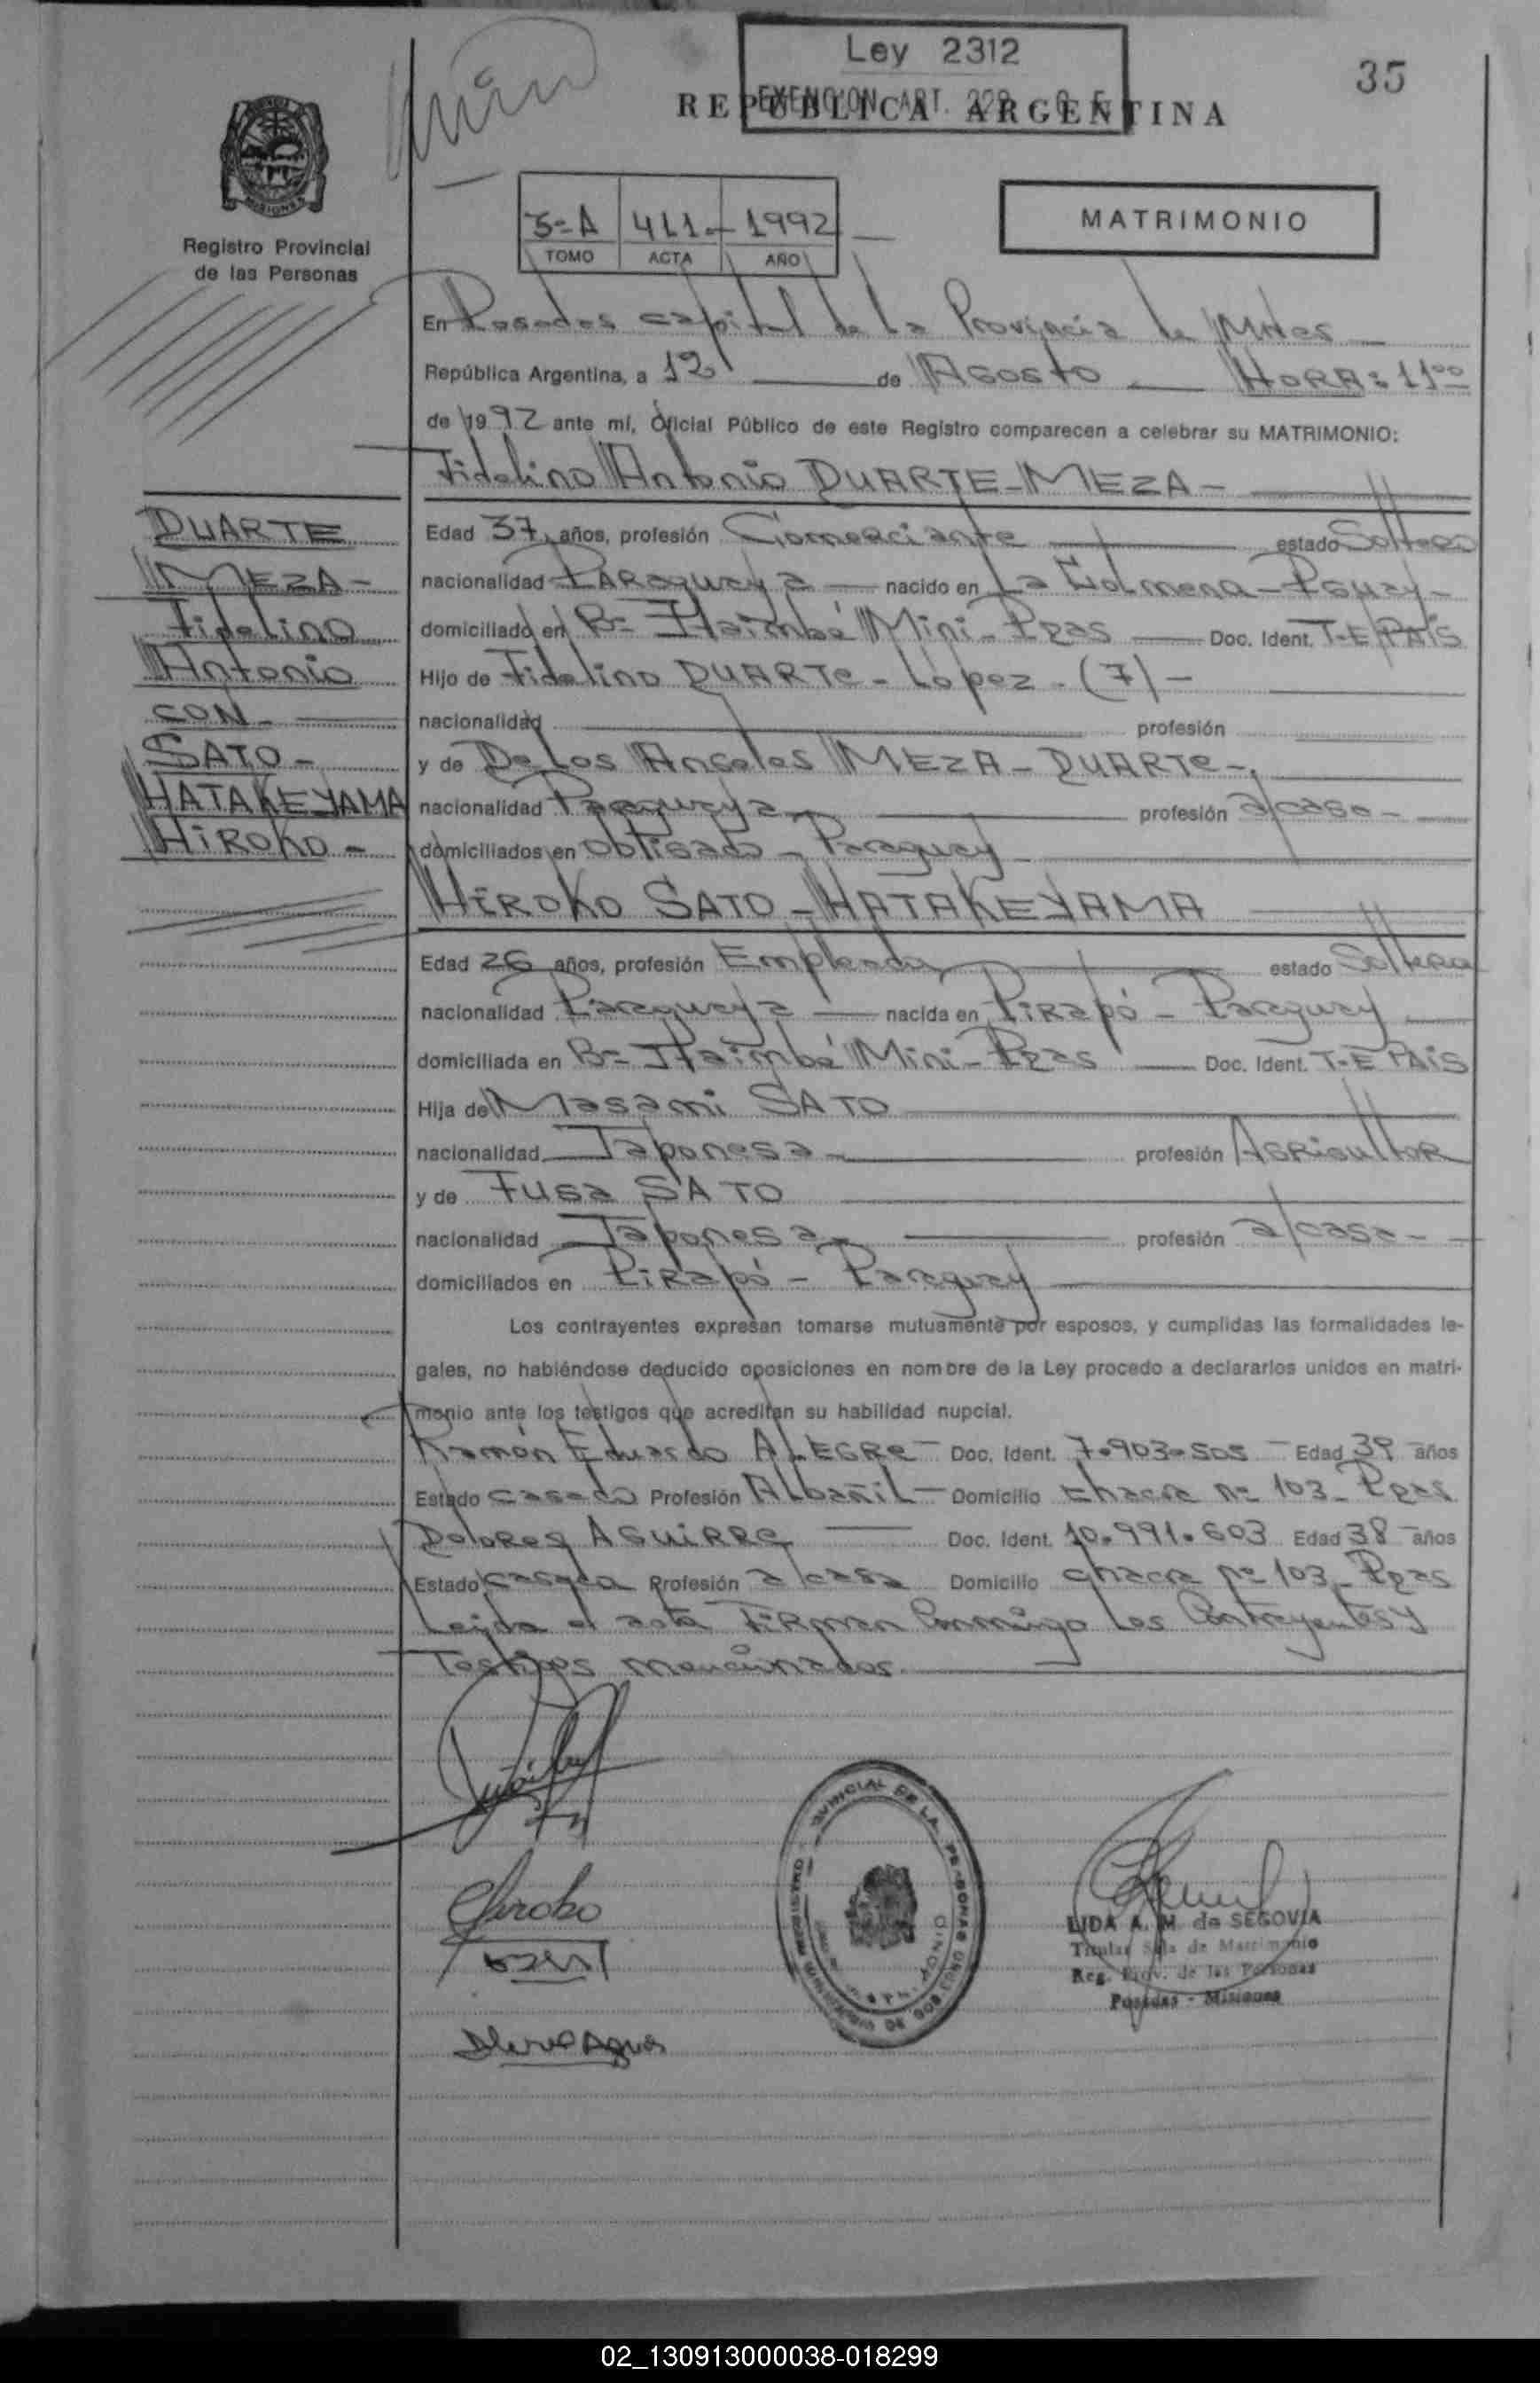 Ley 2312
EXENCION ART. 229
35
REPUBLICA ARGENTINA
MISIONES
Registro Provincial
de las Personas
3=A 411.- 1992
TOMO ACTA AÑO
MATRIMONIO
En Posadas capital de la Provincia de Mnes
República Argentina, a 12 de Agosto HORA: 11ºº
de 1992 ante mí, Oficial Público de este Registro comparecen a celebrar su MATRIMONIO:
Fidelino Antonio DUARTE-MEZA-
Edad 37 años, profesión Comerciante estado Soltero
nacionalidad Paraguaya nacido en La Colmena-Pguay-
domiciliado en Bº Itaimbé Mini-Pdas Doc. Ident. T-E PAIS
Hijo de Fidelino DUARTE-López-(7)-
nacionalidad profesión
y de De Los Angeles MEZA-DUARTE-
nacionalidad Paraguaya profesión a/casa-
domiciliados en Obligado-Paraguay-
HIROKO SATO-HATAKEYAMA
Edad 26 años, profesión Empleada estado Soltera
nacionalidad Paraguaya nacida en Pirapó-Paraguay
domiciliada en Bº Itaimbé Mini-Pdas Doc. Ident. T-E PAIS
Hija de Masami SATO
nacionalidad Japonesa- profesión Agricultor
y de Fusa SATO
nacionalidad Japonesa- profesión a/casa-
domiciliados en Pirapó-Paraguay
Los contrayentes expresan tomarse mutuamente por esposos, y cumplidas las formalidades le-
gales, no habiéndose deducido oposiciones en nombre de la Ley procedo a declararlos unidos en matri-
monio ante los testigos que acreditan su habilidad nupcial.
Ramón Eduardo ALEGRE- Doc. Ident. 7.903.505 Edad 39 años
Estado casado Profesión Albañil- Domicilio Chacra nº 103-Pdas
Dolores AGUIRRE Doc. Ident. 10.991.603 Edad 38 años
Estado casada Profesión a/casa Domicilio Chacra nº 103-Pdas
Leída el acta firman Conmigo los Contrayentes y
Testigos mencionados.
DUARTE
MEZA-
Fidelino
Antonio
CON-
SATO-
HATAKEYAMA
HIROKO-
Hiroko
LIDA A. M. de SEGOVIA
Titular Sala de Matrimonio
Reg. Prov. de las Personas
Posadas - Misiones
02_130913000038-018299